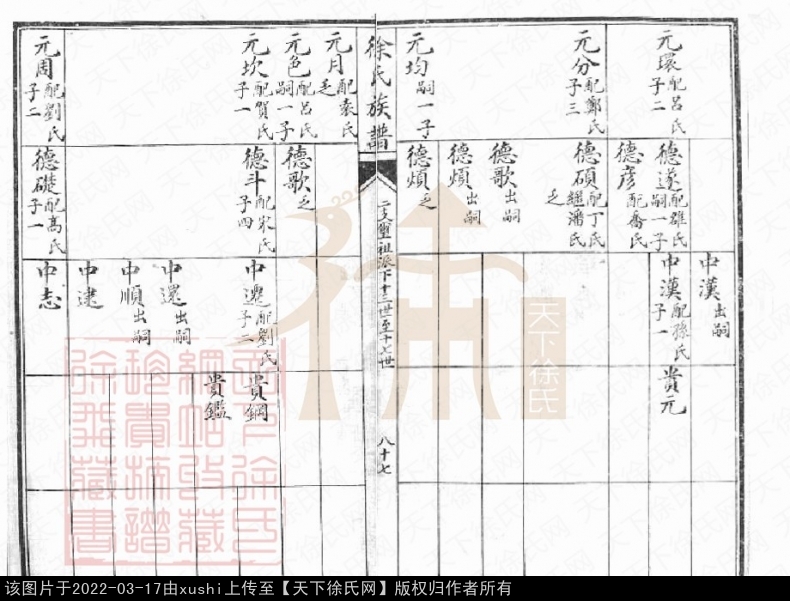 元環 配呂氏 子二
元分 配鄭氏 子三
元均 嗣一子
中漢 出嗣
德遂 配雒氏 嗣一子
德彦 配喬氏
德碩 配丁氏 繼潘氏 乏
德歌 出嗣
德煩 出嗣
德煩 乏
中漢 配孫氏 子一
貴元
徐氏族譜
二支聖祖派下十三世至十七世
八十七
元月 配袁氏 乏
元色 配呂氏 嗣一子
元坎 配賀氏 子一
元周 配劉氏 子二
德歌 乏
德斗 配宋氏 子四
德礎 配髙氏 子一
中邊 配劉氏 子二
中還 出嗣
中順 出嗣
中逮
中志
貴鋼
貴鑑
天下徐氏
天下徐氏网
该图片于2022-03-17由xushi上传至【天下徐氏网】版权归作者所有